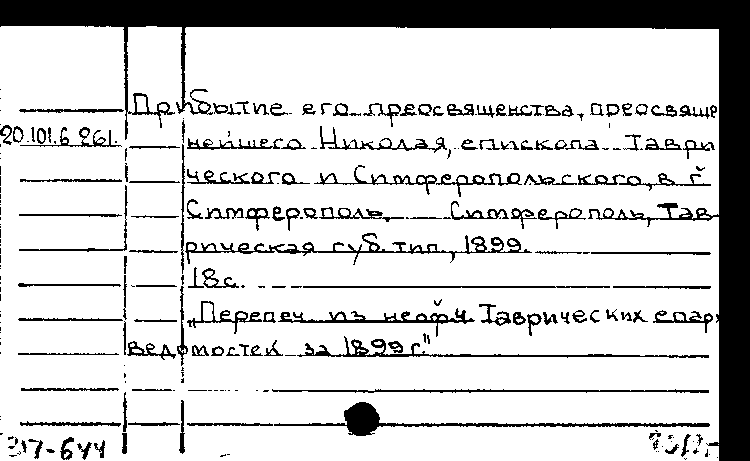 Прибытие его преосвященства, преосвяще
20.101.6 261. нейшего Николая, епископа Таври
ческого и Симферопольского, в г
Симферополь. Симферополь, Тав
рическая губ. тип., 1899.
18 с.
„Перепеч. из неоф.ч. Таврических епар
ведомостей за 1899 г."
317-644